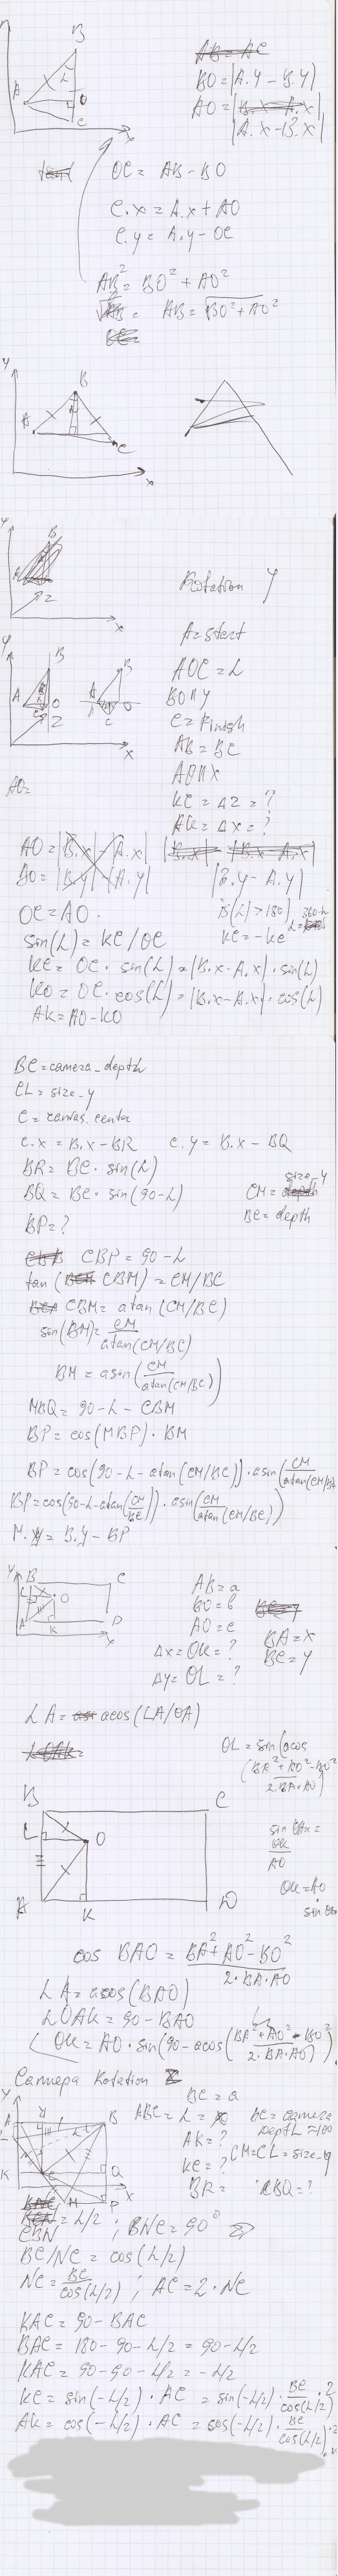 B
A
L
O
C
x
BO = |A.Y - B.Y|
AO = |B.x - A.x|
|A.x - B.x|
OC = AB - BO
C.x = A.x + AO
C.y = A.y - OC
AB² = BO² + AO²
AB = √BO² + AO²
Y
B
A
C
x
Y
B
Z
x
Rotation Y
A = start
AOC = L
BO ∩ Y
C = Finish
AB = BC
AO ∩ X
KC = ΔZ = ?
AK = ΔX = ?
Y
B
A
O
C
Z
x
AO =
AO = |B.x| - |A.x|
BO = |B.y| - |A.y|
|B.y - A.y|
OC = AO.
is(L) > 180, L = 360-L
KC = -KC
sin(L) = KC / OC
KC = OC · sin(L) = |B.x - A.x| · sin(L)
KO = OC · cos(L) = |B.x - A.x| · cos(L)
AK = AO - KO
BC = camera_depth
CL = size_y
C = canvas.center
C.x = B.x - BR C.y = B.x - BQ
BR = BC · sin(L)
BQ = BC · sin(90-L)
CM = size_y
BC = depth
BP = ?
CBP = 90 - L
tan(CBM) = CM/BC
CBM = atan(CM/BC)
sin(BM) = CM / atan(CM/BC)
BM = asin(CM / atan(CM/BC))
MBQ = 90 - L - CBM
BP = cos(MBP) · BM
BP = cos(90 - L - atan(CM/BC)) · asin(CM / atan(CM/BC))
BP = cos(90 - L - atan(CM/BC)) · asin(CM / atan(CM/BC))
M.y = B.y - BP
Y
B
C
L
O
A
K
D
x
AB = a
BO = b
AO = c
BA = x
BC = y
Δx = OK = ?
Δy = OL = ?
LA = acos(LA/OA)
OL = sin(acos(BA² + AO² - BO² / 2·BA·AO)
B
C
L
O
A
K
D
sin OAK = OK / AO
OK = AO · sin OAK
cos BAO = BA² + AO² - BO² / 2·BA·AO
LA = acos(BAO)
LOAK = 90 - BAO
OK = AO · sin(90 - acos(BA² + AO² - BO² / 2·BA·AO))
Cammera Rotation Z
BC = a
ABC = L
BC = camera depth = 100
AK = ?
KC = ?
CM = CL = size_y
BR =
BQ = ?
Y
A
B
K
C
Q
M
P
x
CBN = L/2; BNC = 90°
BC/NC = cos(L/2)
NC = BC / cos(L/2); AC = 2 · NC
KAC = 90 - BAC
BAC = 180 - 90 - L/2 = 90 - L/2
KAC = 90 - 90 - L/2 = -L/2
KC = sin(-L/2) · AC = sin(-L/2) · BC / cos(L/2) · 2
AK = cos(-L/2) · AC = cos(-L/2) · BC / cos(L/2) · 2